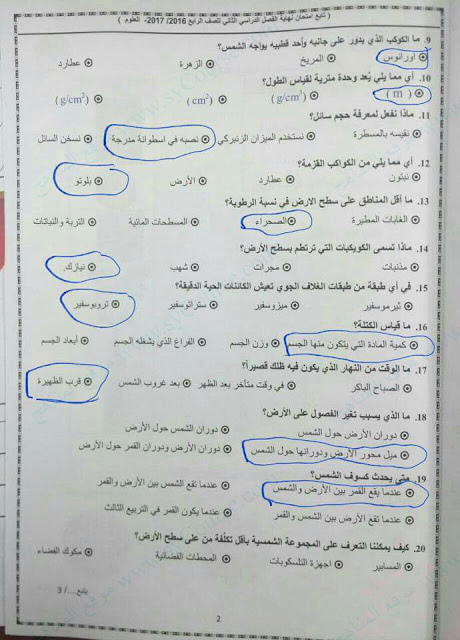 ( تابع امتحان نهاية الفصل الدراسي الثاني للصف الرابع 2016/ 2017- العلوم )
9. ما الكوكب الذي يدور على جانبه وأحد قطبيه يواجه الشمس؟
اورانوس المريخ الزهرة عطارد
10. أي مما يلي يُعد وحدة مترية لقياس الطول؟
( m ) (g/cm³) (cm²) (g/cm²)
11. ماذا نفعل لمعرفة حجم سائل؟
نقيسه بالمسطرة نستخدم الميزان الزنبركي نصبه في اسطوانة مدرجة نسخن السائل
12. أي مما يلي من الكواكب القزمة؟
نبتون عطارد الأرض بلوتو
13. ما أقل المناطق على سطح الارض في نسبة الرطوبة؟
الغابات المطيرة الصحراء المسطحات المائية التربة والنباتات
14. ماذا تسمى الكويكبات التي ترتطم بسطح الأرض؟
مذنبات مجرات شهب نيازك.
15. في أي طبقة من طبقات الغلاف الجوي تعيش الكائنات الحية الدقيقة؟
ثيرموسفير ميزوسفير ستراتوسفير تروبوسفير
16. ما قياس الكتلة؟
كمية المادة التي يتكون منها الجسم وزن الجسم الفراغ الذي يشغله الجسم أبعاد الجسم
17. ما الوقت من النهار الذي يكون فيه ظلك قصيراً؟
الصباح الباكر في وقت متأخر بعد الظهر بعد غروب الشمس قرب الظهيرة
18. ما الذي يسبب تغير الفصول على الأرض؟
دوران الأرض حول الشمس دوران الشمس حول الأرض
ميل محور الأرض ودورانها حول الشمس دوران الأرض ودوران القمر حول الأرض
19. متى يحدث كسوف الشمس؟
عندما يقع القمر بين الأرض والشمس عندما تقع الشمس بين الأرض والقمر
عندما تقع الأرض بين الشمس والقمر عندما يكون القمر في التربيع الثالث
20. كيف يمكننا التعرف على المجموعة الشمسية بأقل تكلفة من على سطح الأرض؟
المسابير اجهزة التلسكوبات المحطات الفضائية مكوك الفضاء
يتبع..../ 3
2